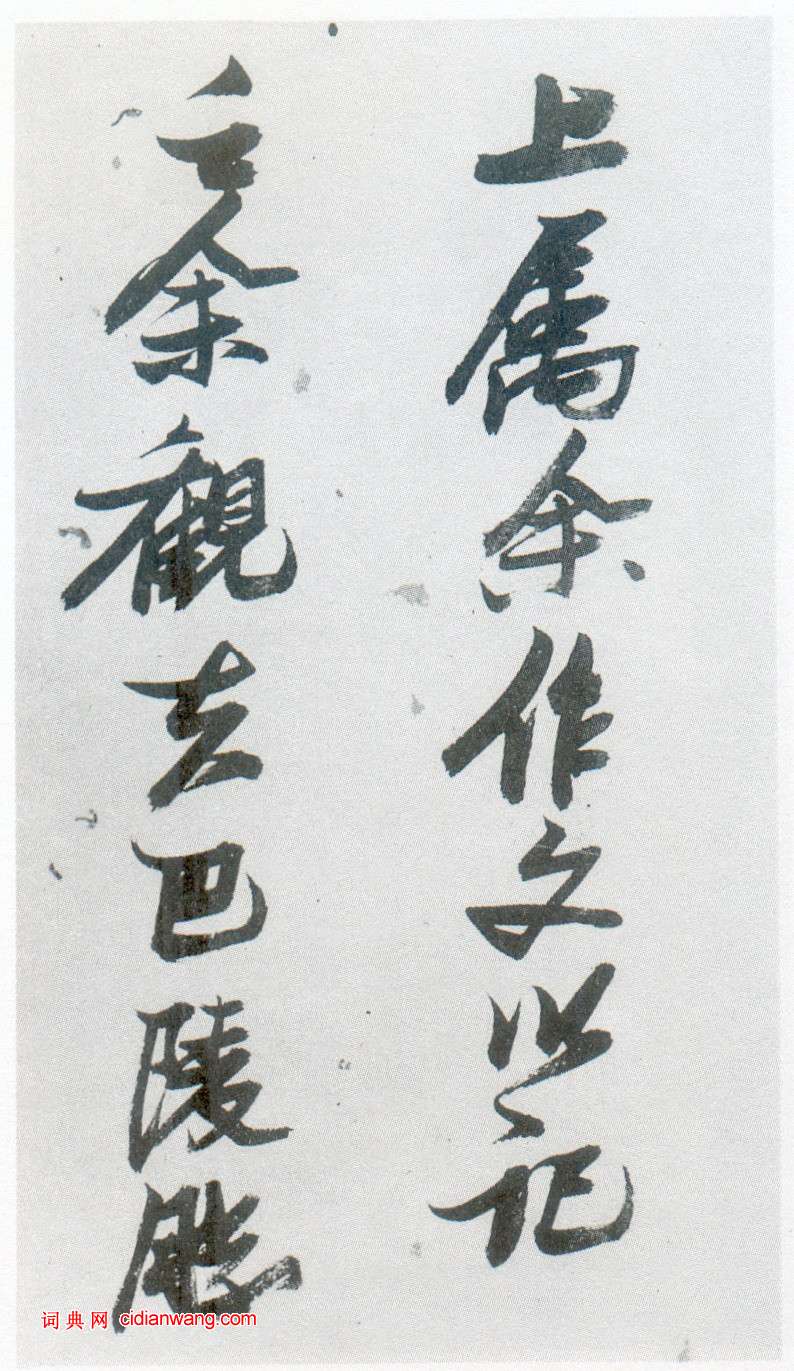 上属余作文以記
之余觀夫巴陵勝
词典网 cidianwang.com